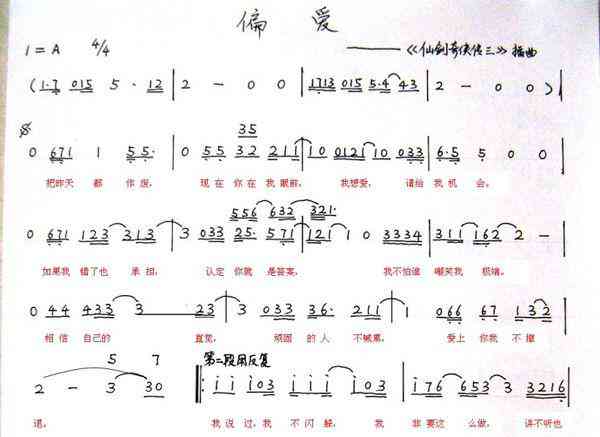 偏爱
1=A 4/4 ——《仙剑奇侠传三》插曲
(1·7 015 5 · 12 | 2 - 0 0 | 1713 015 5·4 43 | 2 - 0 0 )|
0 671 1 55· | 0 55 32 211 | 10 0121 10 033 | 6·5 5 0 0
35
把昨天 都 作废, 现在 你在 我 眼前, 我想爱, 请给 我 机 会。
556 632 321·
0 671 123 313 | 3 033 25· 571 | 121 1 0 3334 | 311 162 2 - |
如果我 错了也 承担, 认定 你就 是答案, 我不怕谁 嘲笑我 极端。
0 44 433 3 23 | 3 033 36· 211 | 1 066 67 132
相信 自己的 直觉, 顽固 的人 不喊累, 爱上 你我 不撤
5 7 第二段用反复
2 - 3 30 ‖: i i i03 i i i i03 | i76 653 3 3216
退。 我 说过,我 不 闪躲, 我 非要这 么做, 讲不听也